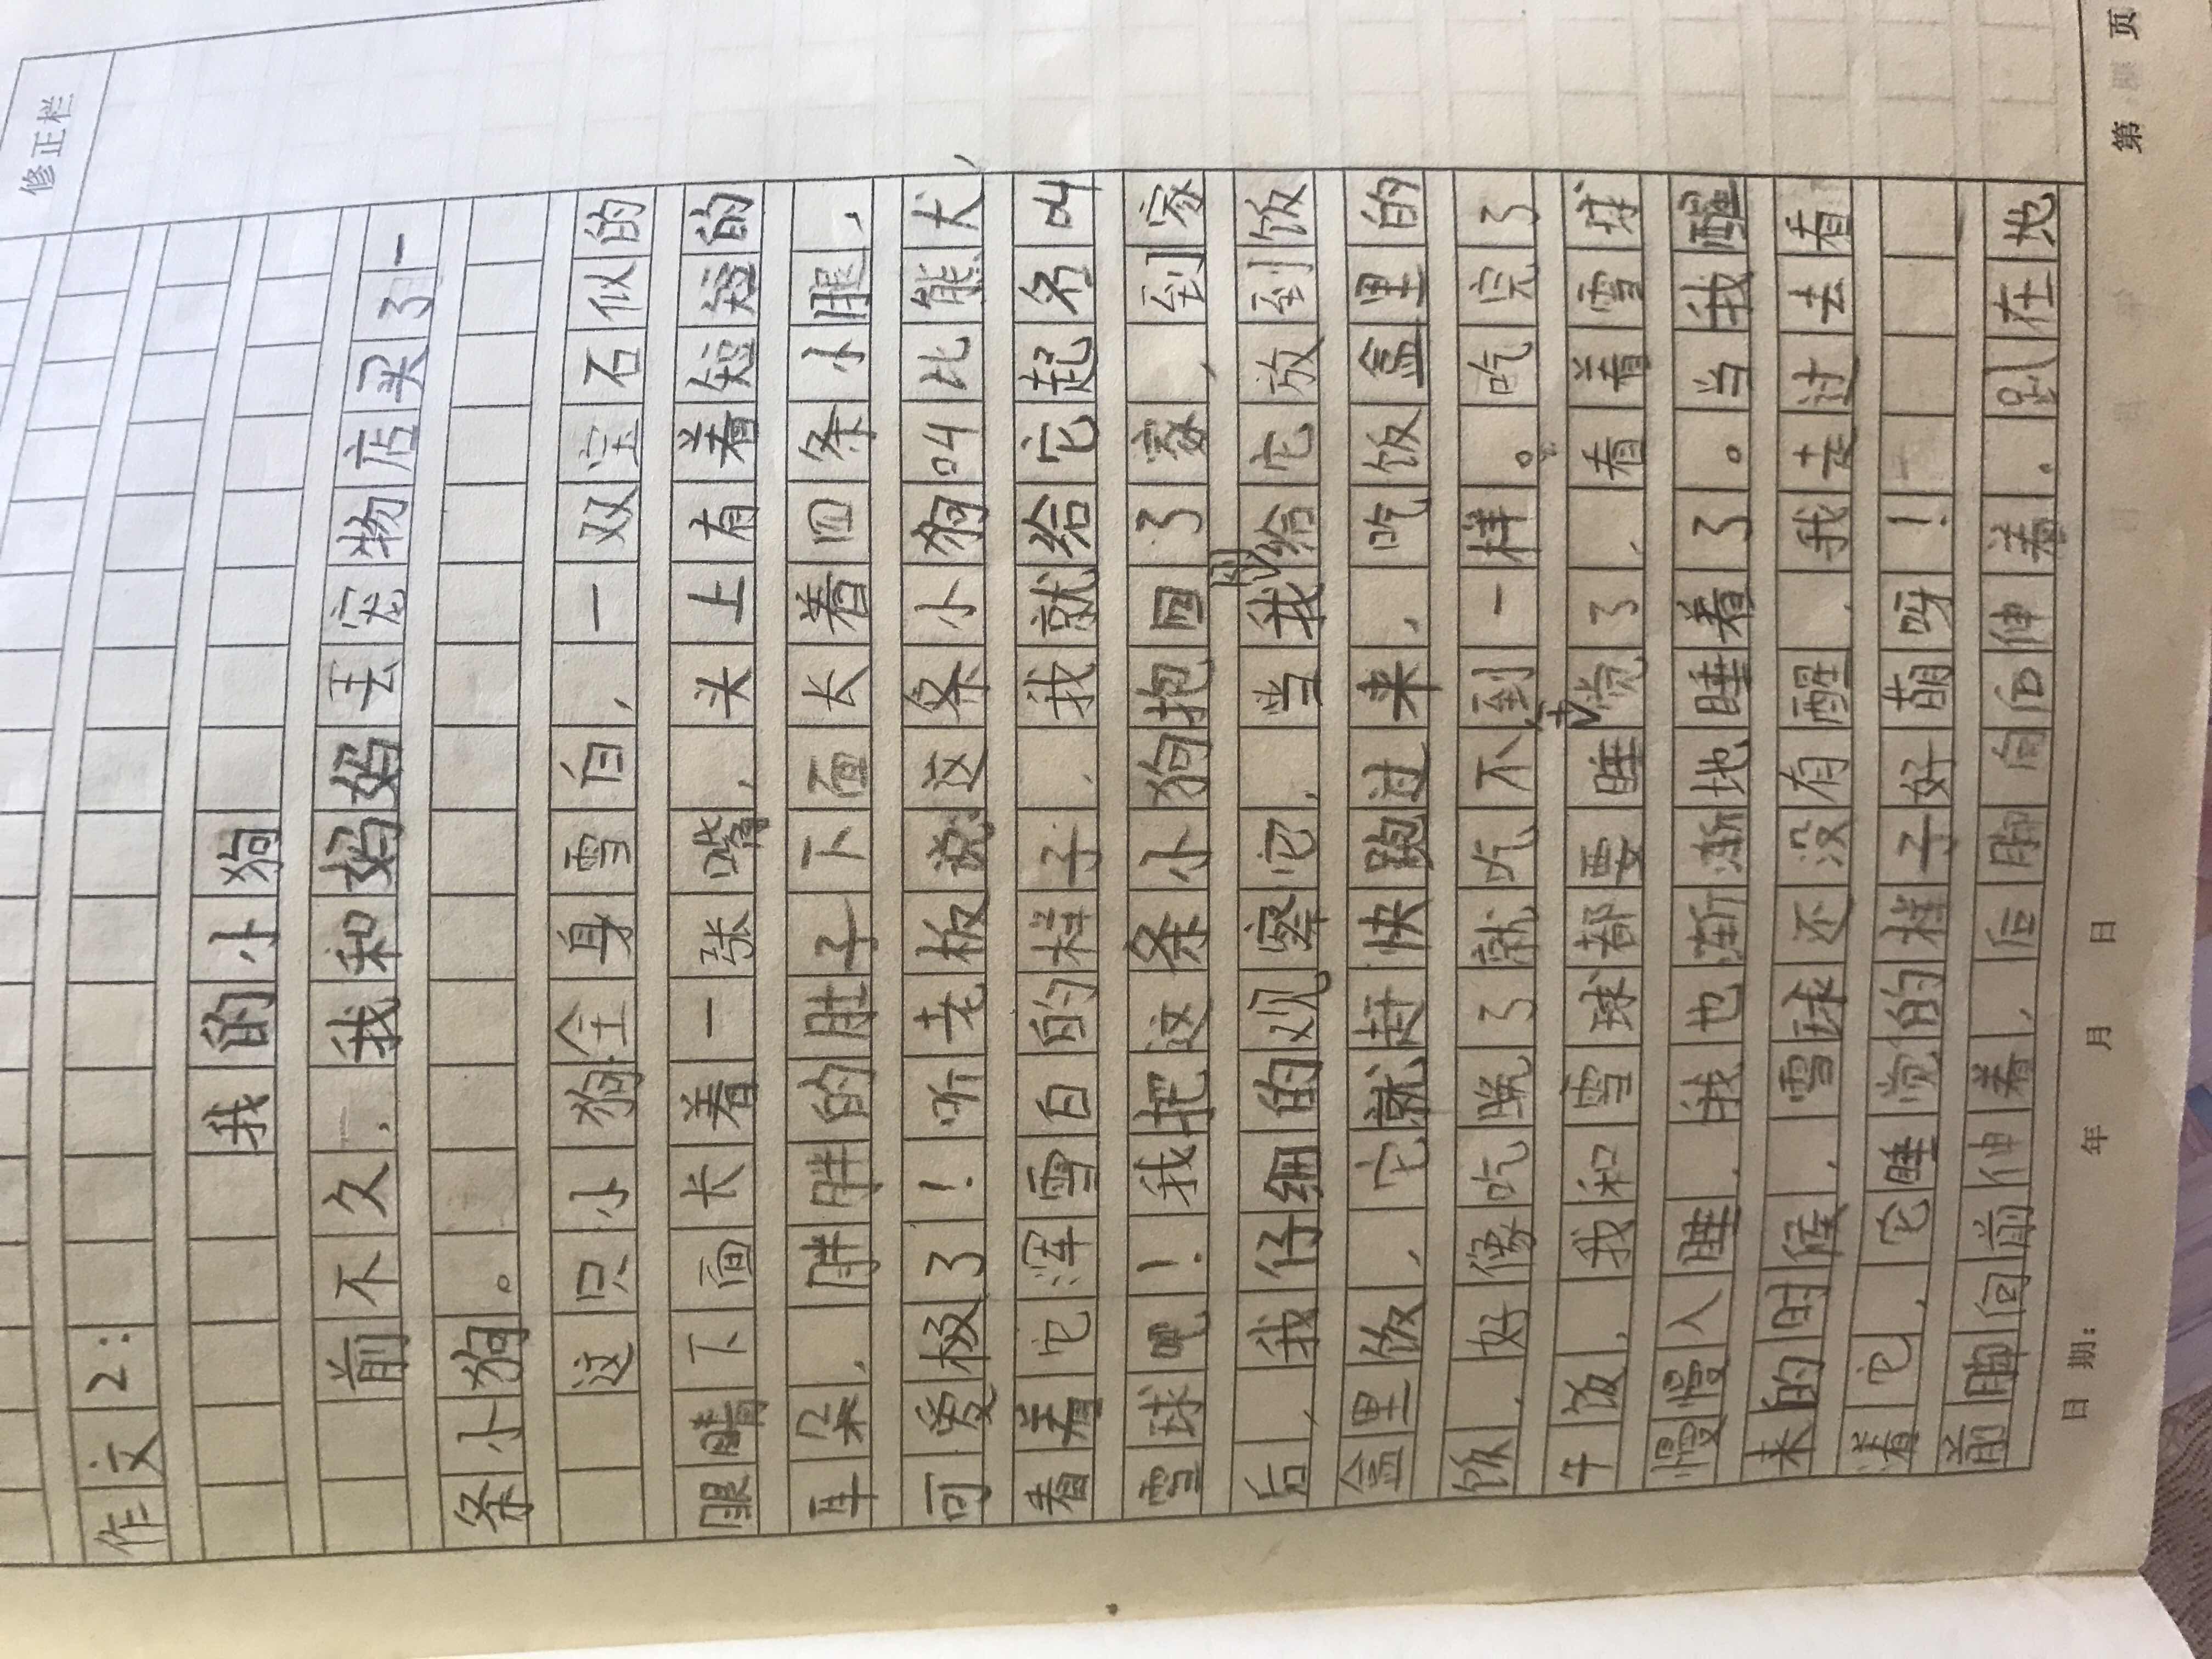 修正栏
作文2:
我的小狗
前不久,我和妈妈去宠物店买了一
条小狗。
这只小狗全身雪白,一双宝石似的
眼睛下面长着一张嘴,头上有着短短的
耳朵,胖胖的肚子下面长着四条小腿,
可爱极了!听老板说这条小狗叫比熊犬,
看着它浑身雪白的样子,我就给它起名叫
雪球吧!我把这条小狗抱回了家,到家
后,我仔细的观察它,当我给它放到饭
盆里饭,它就赶快跑过来,吃饭盆里的
饭,好像吃晚了就吃不到一样。吃完了
午饭,我和雪球都要睡觉了,看着雪球
慢慢入睡,我也渐渐地睡着了。当我醒
来的时候,雪球还没有醒,我走过去看
着它,它睡觉的样子好萌呀!
前脚向前伸着,后脚向后伸着,趴在地
日期: 年 月 日
第 页